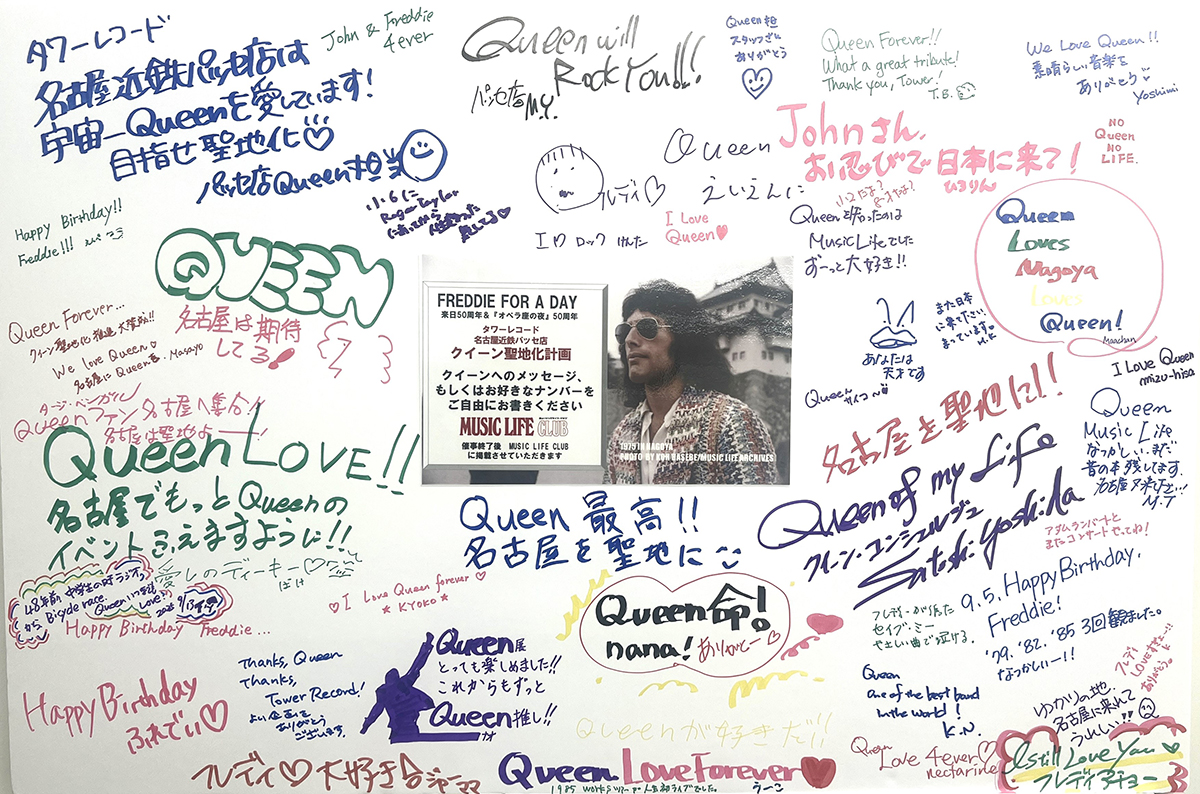 タワーレコード
名古屋近鉄パッセ店は
宇宙一Queenを愛しています!
目指せ聖地化♡
パッセ店Queen担当
John & Freddie
4ever
Queen will
Rock You!!!
パッセ店 M.Y.
Queen担
スタッフさん
ありがとう
Queen Forever!!
What a great tribute!
Thank you, Tower!
T.B.
We Love Queen!!
素晴らしい音楽を
ありがとう
Yoshimi
Johnさん、
お忍びで日本に来て!
ひろりん
NO
Queen
NO
LIFE.
Happy Birthday!!
Freddie!!!
小6に
Roger Taylor
フレディ♡
Queen
えいえんに
I Love
Queen♥
I♡ロック けんた
Queenと出会ったのは
Music Lifeでした
ずーっと大好き!!
Queen
Loves
Nagoya
Loves
Queen!
Maachan
QUEEN
名古屋は期待
してる!
Queen Forever...
クイーン聖地化推進大賛成!!
We love Queen♡
名古屋にQueen愛 Masayo
FREDDIE FOR A DAY
来日50周年&『オペラ座の夜』50周年
タワーレコード
名古屋近鉄パッセ店
クイーン聖地化計画
クイーンへのメッセージ、
もしくはお好きなナンバーを
ご自由にお書きください
MUSIC LIFE CLUB
催事終了後 MUSIC LIFE CLUB
に掲載させていただきます
1975 IN NAGOYA
PHOTO BY KOH HASEBE/MUSIC LIFE ARCHIVES
あなたは
天才です
また日本
に来て下さい
まっています。
M.K
Queen サイコー
I Love Queen
mizu-hisa
タージ・ベンガル
Queenファン名古屋へ集合!!
名古屋は聖地よー!
Queen LOVE!!
名古屋でもっとQueenの
イベントふえますように!!
名古屋を聖地に!!
Queen
Music Life
なつかしい。まだ
昔の本残してます。
M.T
Queen of my Life
クイーン・コンシェルジュ
Satoshi Yoshida
アダムランバートと
またコンサートやってね!
Queen最高!!
名古屋を聖地に
愛しのディーキー♡
48年前 中学生の時ラジオ
から Bicycle race.
Happy Birthday Freddie...
♡I Love Queen forever♡
★KYOKO★
Queen命!
nana! ありがとー♡
フレディーが残した
セイブ・ミー
やさしい曲で泣ける。
9.5. Happy Birthday.
Freddie!
'79. '82. '85 3回観ました。
なつかしいー!!
フレディ
Loveすぎょー!!
ありがとう。
Happy Birthday
ふれでぃ♡
Thanks, Queen
Thanks,
Tower Record!
よい企画を
ありがとう
ございます。
Queen展
とっても楽しめました!!
これからもずっと
Queen推し!!
Queenが好きだ!!
Queen
one of the best band
in the world!
K.N.
ゆかりの地、
名古屋に来れて
うれしい!!
フレディ♡大好き
ジャーマ
Queen Love Forever♥
1985 WORKSツアーが人生初ライブでした。 うーこ
Queen
Love 4ever♡
nectarine
I Still Love You
フレディ